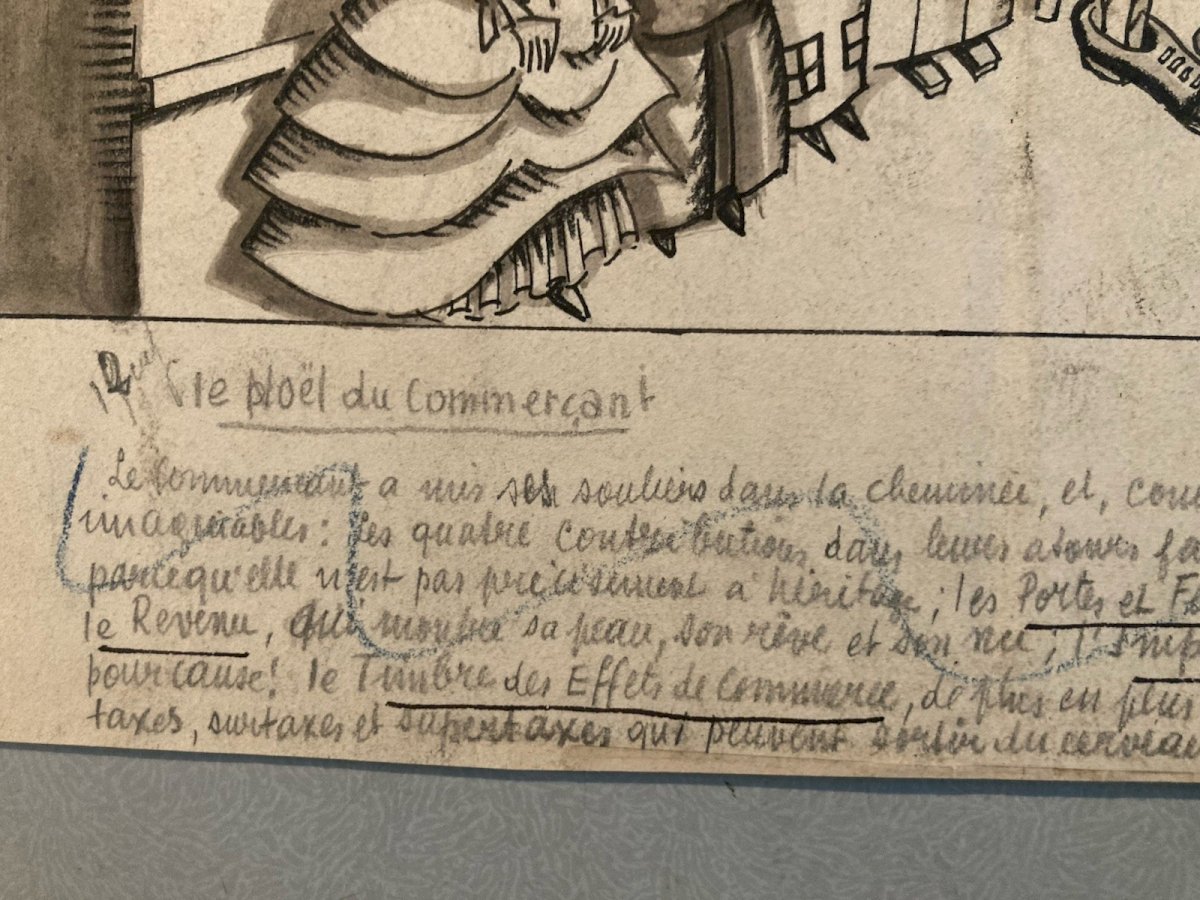 12
le Noël du Commerçant
Le Commerçant a mis ses souliers dans la cheminée, et,
imaginables: les quatre Contributions dans leurs atours
parcequ'elle n'est pas précisément à héritage; les Portes et
le Revenu, qui montre sa peau, son rêve et son nez;
pour cause! le Timbre des Effets de Commerce, de plus en plus
taxes, surtaxes et supertaxes qui peuvent sortir du cerveau